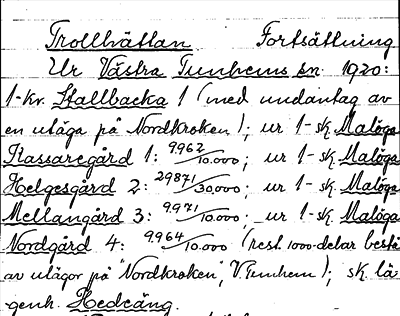 Trollhättan Fortsättning
Ur Västra Tunhems sn. 1920:
1-kv. Stallbacka 1 (med undantag av
en utäga på Nordkroken); ur 1-sk Malöga
Kassaregård 1: 9962/10.000; ur 1-sk Malöga
Helgesgård 2: 29871/30,000; ur 1-sk Malöga
Mellangård 3: 9971/10.000; ur 1-sk. Malöga
Nordgård 4: 9964/10.000 (rest. 1000-delar bestå
av utägor på "Nordkroken", V. Tunhem); sk. lä-
genh. Hedeäng.